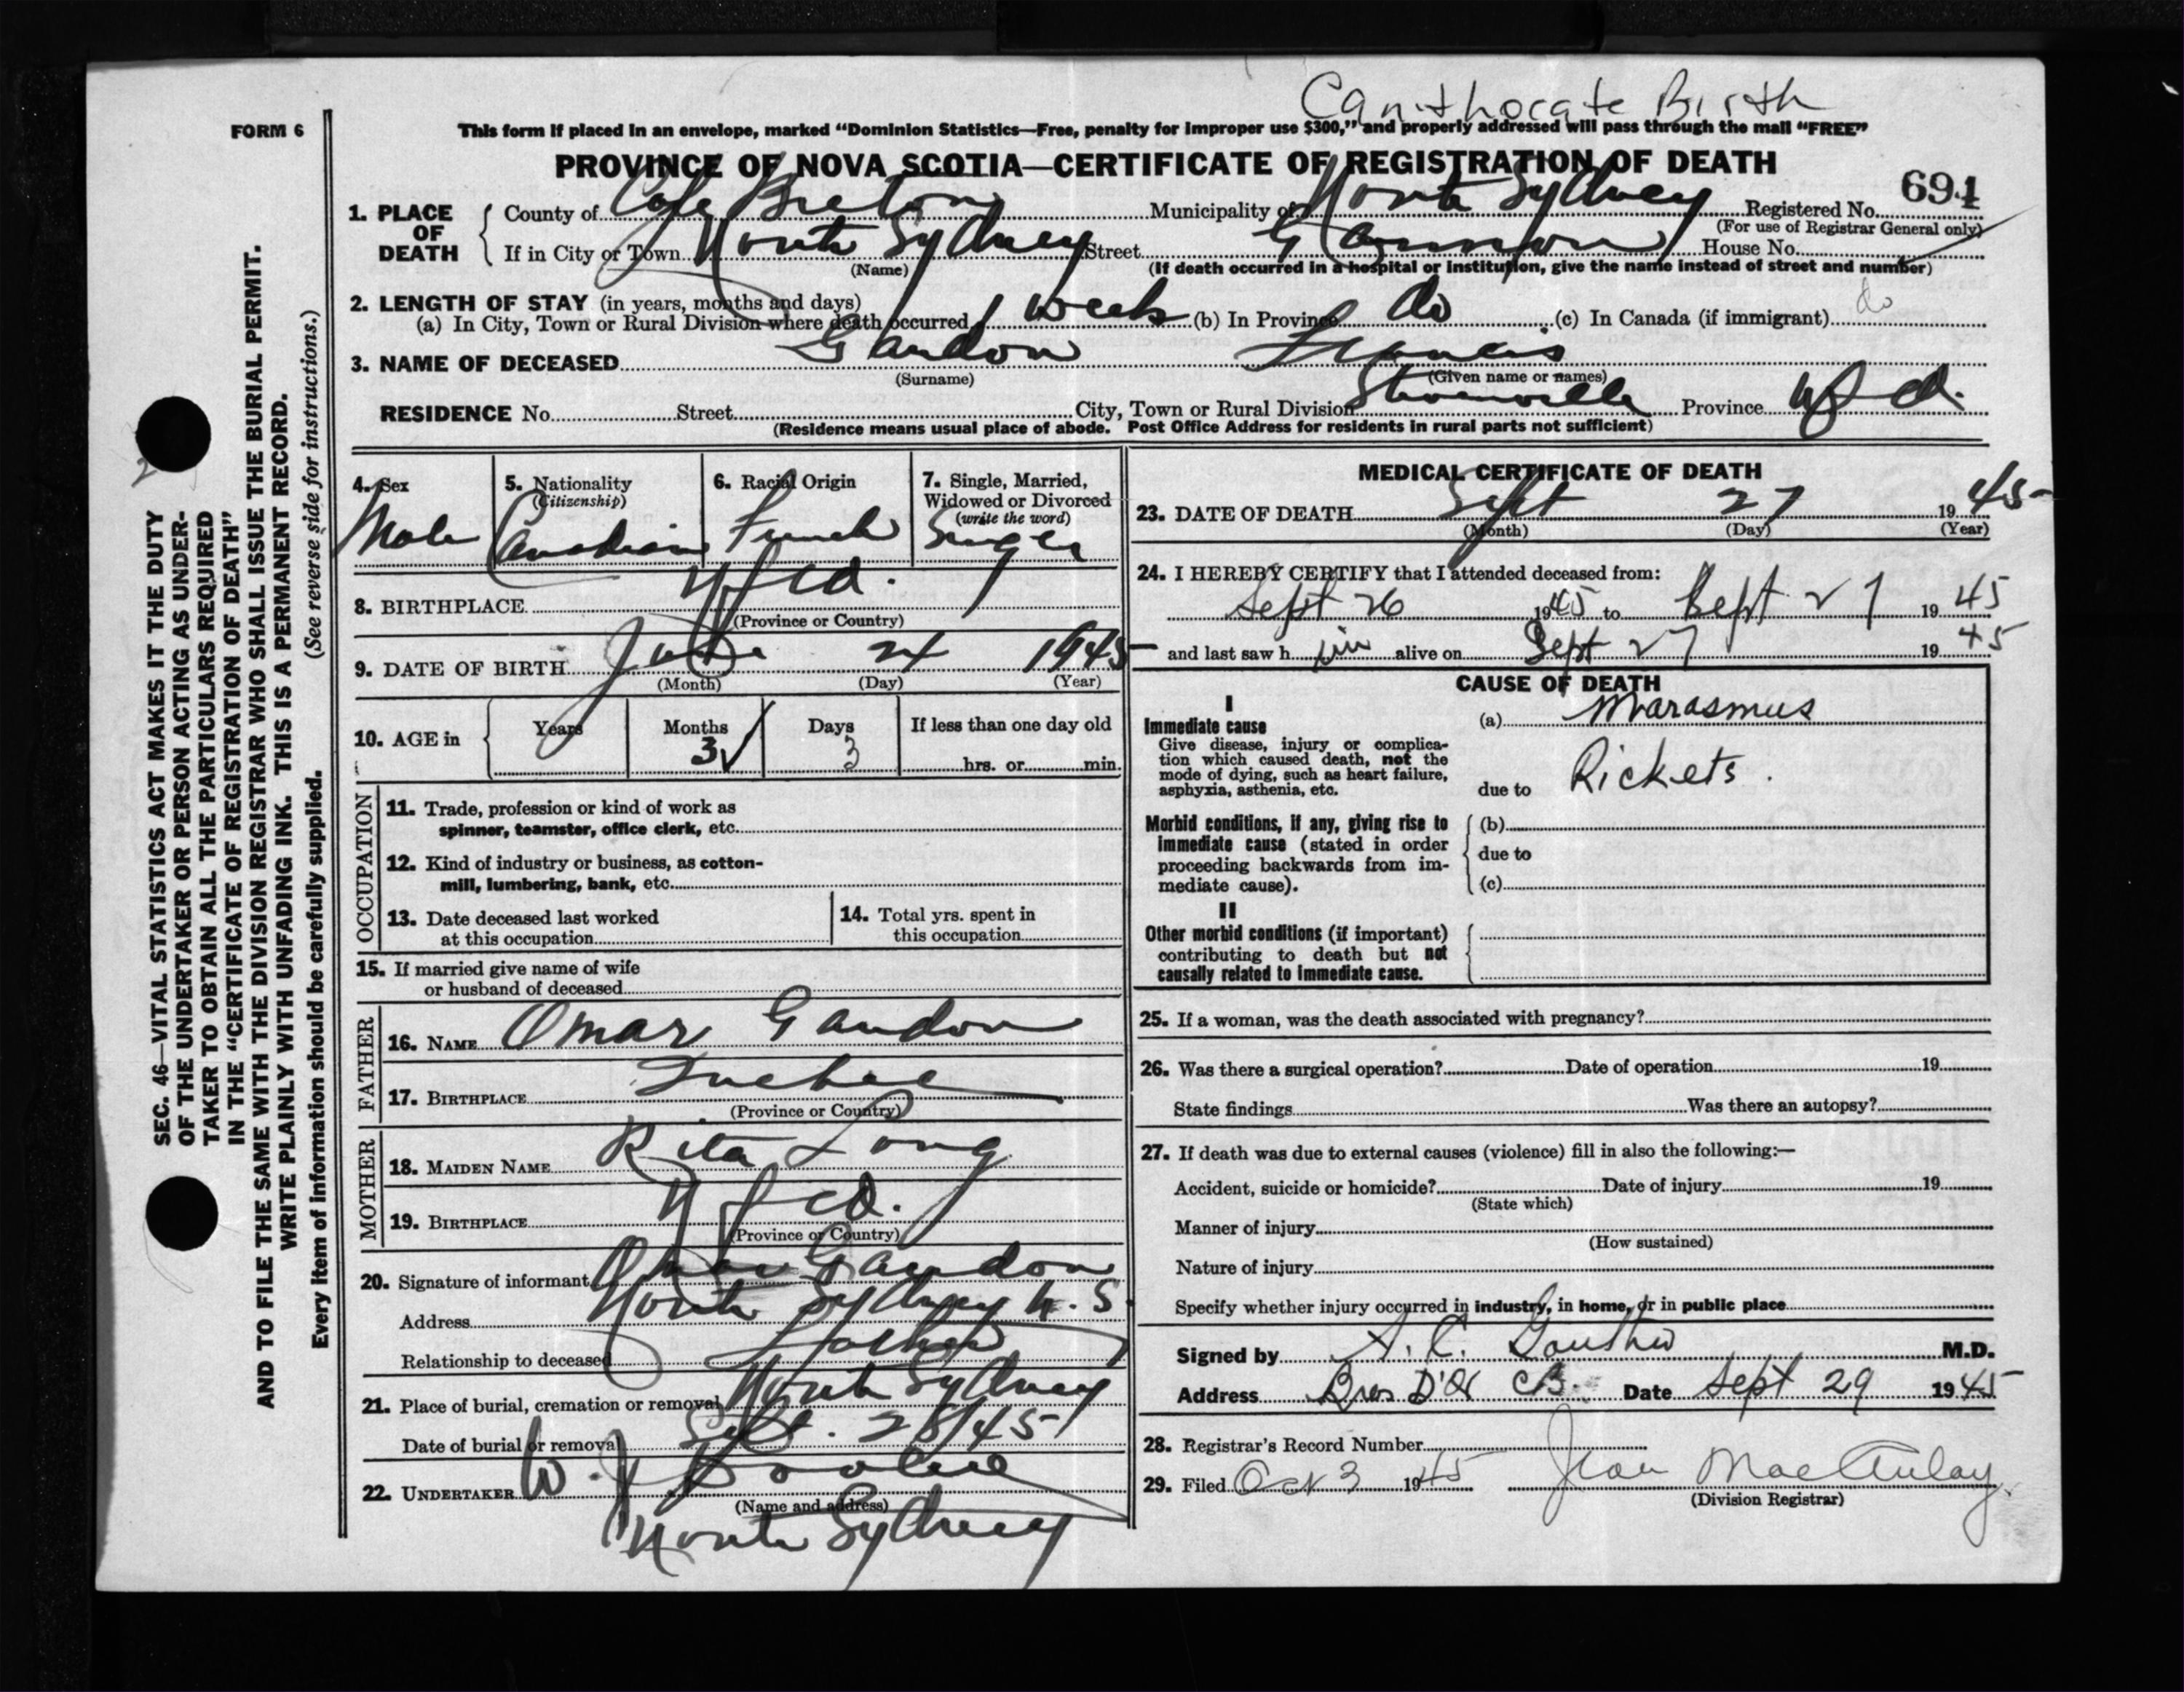 Can't hocate Birth
FORM 6
This form if placed in an envelope, marked “Dominion Statistics—Free, penalty for improper use $300,” and properly addressed will pass through the mail “FREE”
PROVINCE OF NOVA SCOTIA—CERTIFICATE OF REGISTRATION OF DEATH
694
1. PLACE OF DEATH
County of Cape Breton Municipality of North Sydney Registered No.
(For use of Registrar General only)
If in City or Town North Sydney Street House No.
(Name) (If death occurred in a hospital or institution, give the name instead of street and number)
2. LENGTH OF STAY (in years, months and days)
(a) In City, Town or Rural Division where death occurred 1 week (b) In Province do (c) In Canada (if immigrant) do
3. NAME OF DECEASED Gaudon Francis
(Surname) (Given name or names)
RESIDENCE No. Street City, Town or Rural Division Province Nfld.
(Residence means usual place of abode. Post Office Address for residents in rural parts not sufficient)
4. Sex
Male
5. Nationality
(Citizenship)
Canadian
6. Racial Origin
French
7. Single, Married, Widowed or Divorced
(write the word)
Single
8. BIRTHPLACE Nfld.
(Province or Country)
9. DATE OF BIRTH June 24 1945
(Month) (Day) (Year)
10. AGE in Years Months Days If less than one day old
3 3 hrs. or min.
OCCUPATION
11. Trade, profession or kind of work as
spinner, teamster, office clerk, etc.
12. Kind of industry or business, as cotton-
mill, lumbering, bank, etc.
13. Date deceased last worked
at this occupation
14. Total yrs. spent in
this occupation
15. If married give name of wife
or husband of deceased
FATHER
16. NAME Omar Gaudon
17. BIRTHPLACE Quebec
(Province or Country)
MOTHER
18. MAIDEN NAME Rita Long
19. BIRTHPLACE Nfld.
(Province or Country)
20. Signature of informant Omar Gaudon
Address North Sydney N.S.
Relationship to deceased Father
21. Place of burial, cremation or removal North Sydney
Date of burial or removal Sept. 28/45
22. UNDERTAKER W. J.
(Name and address)
North Sydney
MEDICAL CERTIFICATE OF DEATH
23. DATE OF DEATH Sept 27 1945
(Month) (Day) (Year)
24. I HEREBY CERTIFY that I attended deceased from:
Sept 26 1945 to Sept 27 1945
and last saw him alive on Sept 27 1945
CAUSE OF DEATH
I
Immediate cause
Give disease, injury or complica-
tion which caused death, not the
mode of dying, such as heart failure,
asphyxia, asthenia, etc.
(a) Marasmus
due to Rickets.
Morbid conditions, if any, giving rise to
immediate cause (stated in order
proceeding backwards from im-
mediate cause).
(b)
due to
(c)
II
Other morbid conditions (if important)
contributing to death but not
causally related to immediate cause.
25. If a woman, was the death associated with pregnancy?
26. Was there a surgical operation? Date of operation 19
State findings Was there an autopsy?
27. If death was due to external causes (violence) fill in also the following:—
Accident, suicide or homicide? Date of injury 19
(State which)
Manner of injury
(How sustained)
Nature of injury
Specify whether injury occurred in industry, in home, or in public place
Signed by A. C. M.D.
Address Bras D'Or C.B. Date Sept 29 1945
28. Registrar's Record Number
29. Filed Oct 3 1945 Jean MacAulay
(Division Registrar)
SEC. 46—VITAL STATISTICS ACT MAKES IT THE DUTY
OF THE UNDERTAKER OR PERSON ACTING AS UNDER-
TAKER TO OBTAIN ALL THE PARTICULARS REQUIRED
IN THE “CERTIFICATE OF REGISTRATION OF DEATH”
AND TO FILE THE SAME WITH THE DIVISION REGISTRAR WHO SHALL ISSUE THE BURIAL PERMIT.
WRITE PLAINLY WITH UNFADING INK. THIS IS A PERMANENT RECORD.
Every item of information should be carefully supplied. (See reverse side for instructions.)